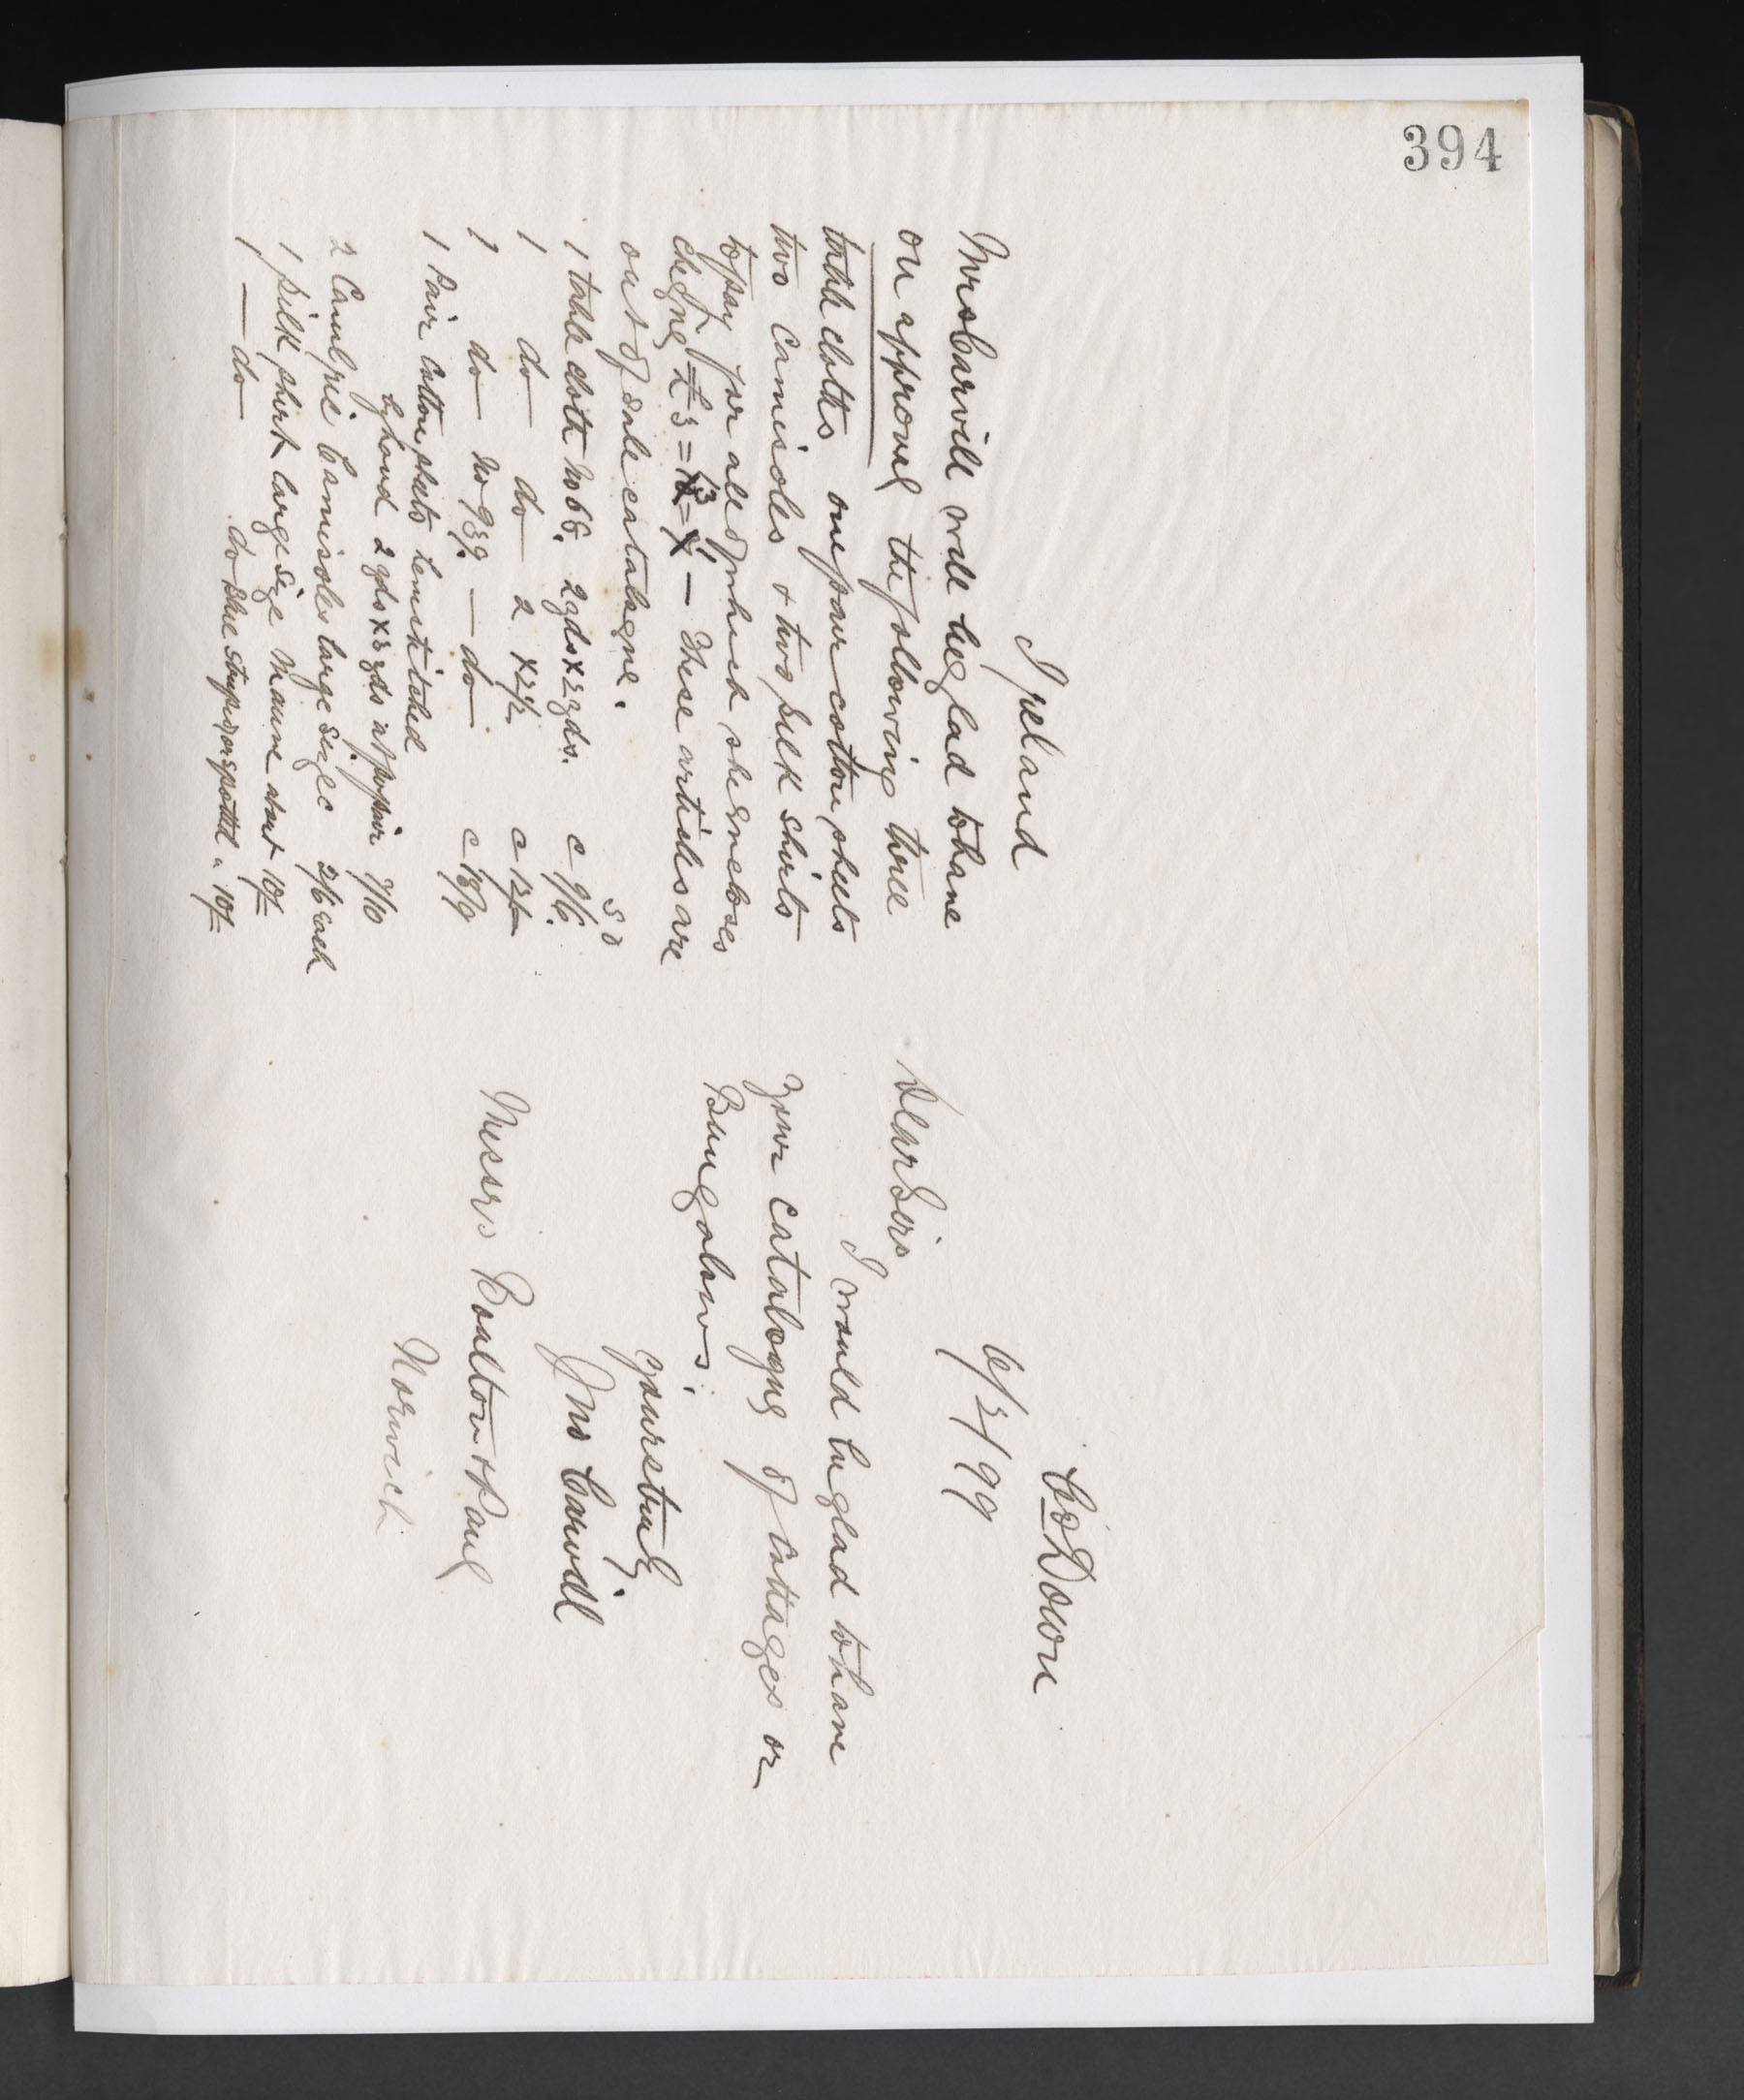 394
Ireland
Mrs Carvill will be glad to have
on approval the following three
table cloths one pair cotton sheets
two camisoles & two silk shirts
to pay for all of which she encloses
cheque £3 = 13 = 1 — These articles are
out of sale catalogue.
s d
1 table cloth No 66. 2 yds x 2 yds. c 9/6.
1 do do 2 x 2½ c 12/-
1 do No 939. — do — c 18/9
1 Pair Cotton sheets hemstitched
by hand 2 yds x 3 yds at per pair 7/10
2 Camisoles large sizes 2/6 each
1 silk shirt large size Mauve about 10/-
1 — do — do blue striped or spotted " 10/-
Co Down
6/2/99
Dear Sirs
I would be glad to have
your catalogue of Cottages or
Bungalows.
Yours truly
Jno Carvill
Messrs Boulton & Paul
Norwich